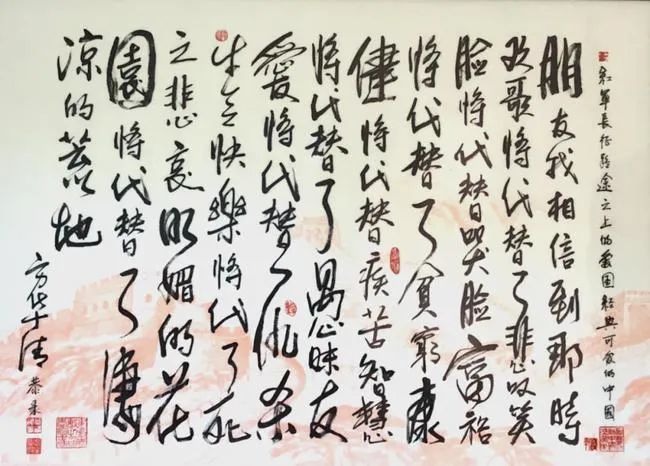 紅軍長征路途之上的愛国經典可愛的中國
朋友我相信到那時
欢歌将代替了悲叹笑
脸将代替哭脸富裕
将代替了貧窮康
健将代替疾苦智慧
将代替了愚昧友
愛将代替了仇杀
生之快樂将代了死
之悲哀明媚的花
園将代替了凄
凉的荒地
恭录